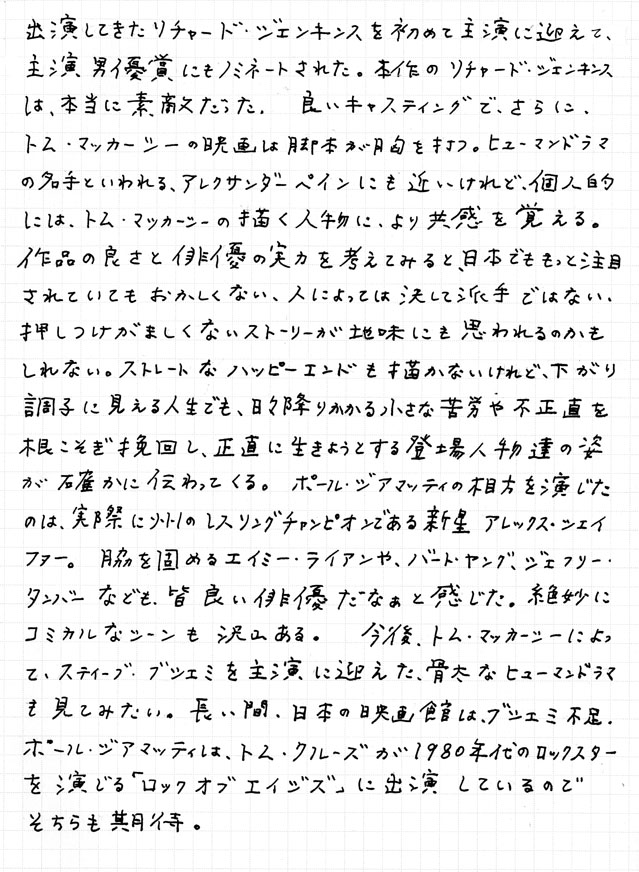 出演してきたリチャード・ジェンキンスを初めて主演に迎えて、
主演男優賞にもノミネートされた。本作のリチャード・ジェンキンス
は、本当に素敵だった。 良いキャスティングで、さらに、
トム・マッカーシーの映画は脚本が胸を打つ。ヒューマンドラマ
の名手といわれる、アレクサンダーペインにも近いけれど、個人的
には、トム・マッカーシーの描く人物に、より共感を覚える。
作品の良さと俳優の実力を考えてみると、日本でももっと注目
されていてもおかしくない、人によっては決して派手ではない、
押しつけがましくないストーリーが地味にも思われるのかも
しれない。ストレートなハッピーエンドも描かないけれど、下がり
調子に見える人生でも、日々降りかかる小さな苦労や不正直を
根こそぎ挽回し、正直に生きようとする登場人物達の姿
が確かに伝わってくる。 ポール・ジアマッティの相方を演じた
のは、実際にリトルのレスリングチャンピオンである新星 アレックス・シェイ
ファー。 脇を固めるエイミー・ライアンや、バート・ヤング、ジェフリー・
タンバーなども、皆良い俳優だなぁと感じた。絶妙に
コミカルなシーンも沢山ある。 今後、トム・マッカーシーによっ
て、スティーブ・ブシェミを主演に迎えた、骨太なヒューマンドラマ
も見てみたい。長い間、日本の映画館は、ブシェミ不足。
ポール・ジアマッティは、トム・クルーズが1980年代のロックスター
を演じる「ロックオブエイジズ」に出演しているので
そちらも期待。